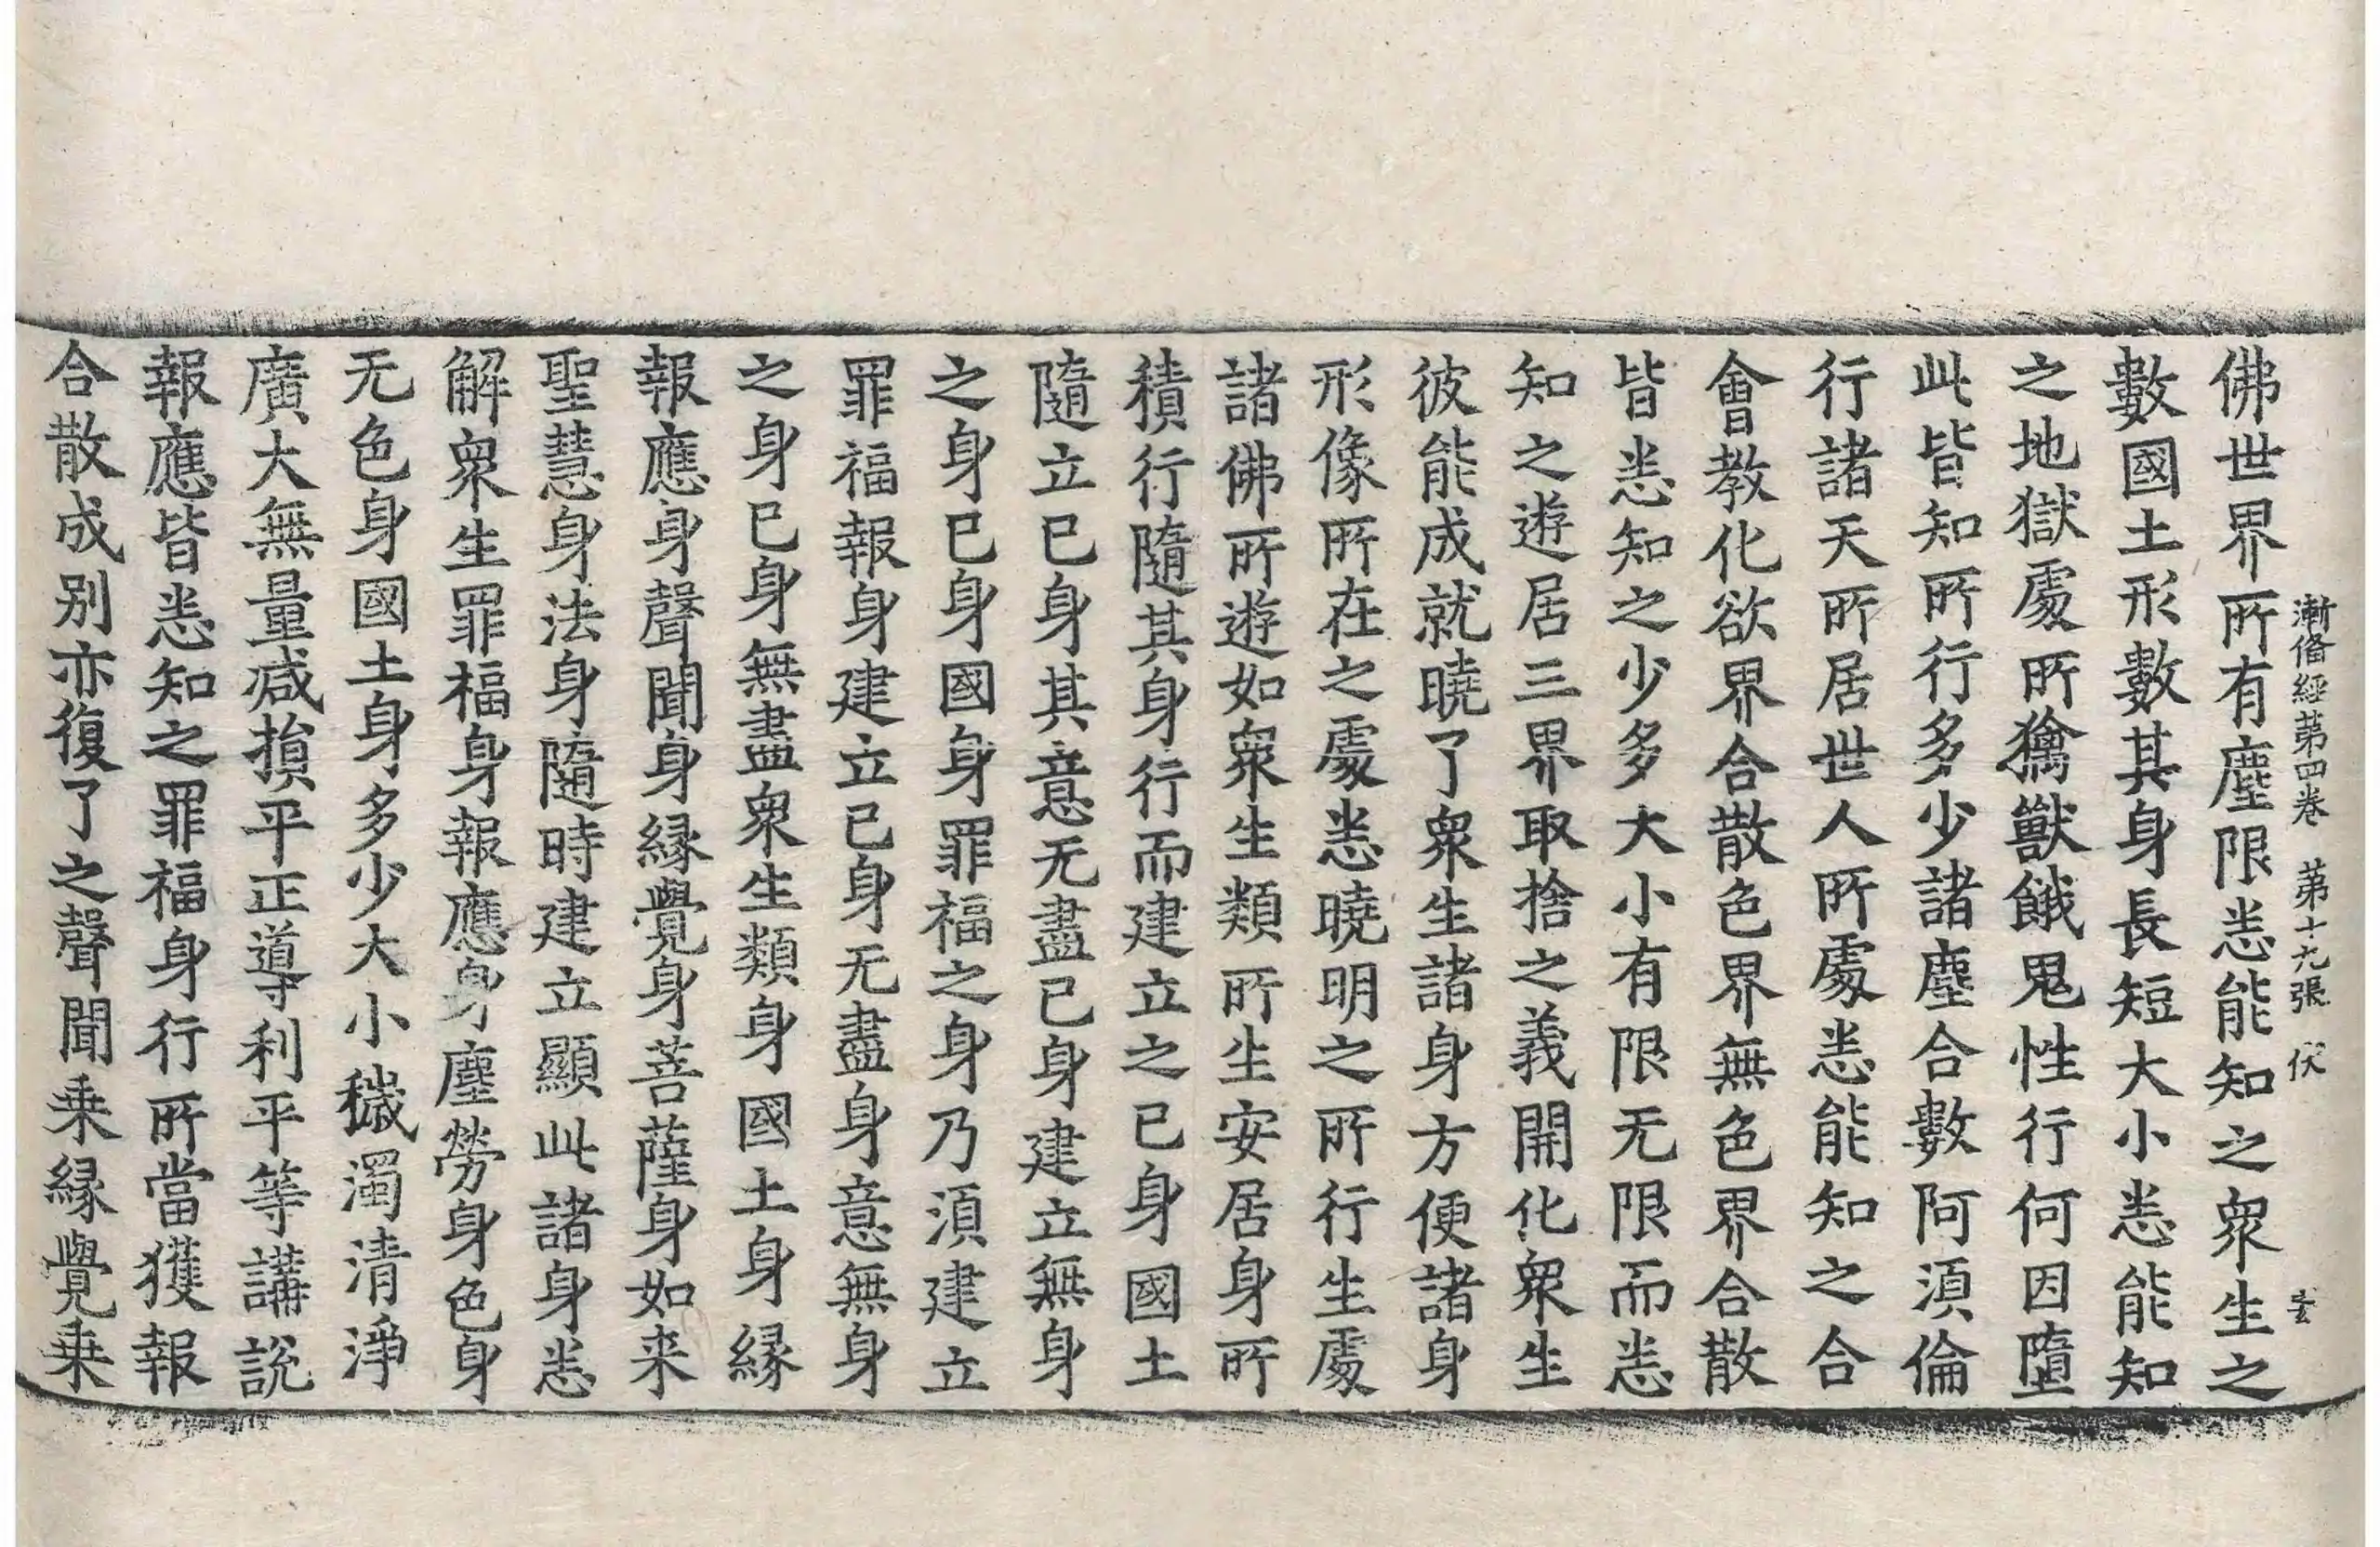 漸俻經第四卷 第十九張 伏
佛世界所有塵限悉能知之眾生之
數國土形數其身長短大小悉能知
之地獄處所獦獸餓鬼性行何因墮
此皆知所行多少諸塵合數阿須倫
行諸天所居世人所處悉能知之合
會教化欲界合散色界無色界合散
皆悉知之少多大小有限无限而悉
知之遊居三界取捨之義開化眾生
彼能成就曉了眾生諸身方便諸身
形像所在之處悉曉明之所行生處
諸佛所遊如眾生類所生安居身所
積行隨其身行而建立之已身國土
隨立已身其意无盡已身建立無身
之身已身國身罪福之身乃須建立
罪福報身建立已身无盡身意無身
之身已身無盡眾生類身國土身緣
報應身聲聞身緣覺身菩薩身如来
聖慧身法身隨時建立顯此諸身悉
解眾生罪福身報應身塵勞身色身
无色身國土身多少大小穢濁清淨
廣大無量减損平正導利平等講說
報應皆悉知之罪福身行所當獲報
合散成别亦復了之聲聞乗緣覺乗